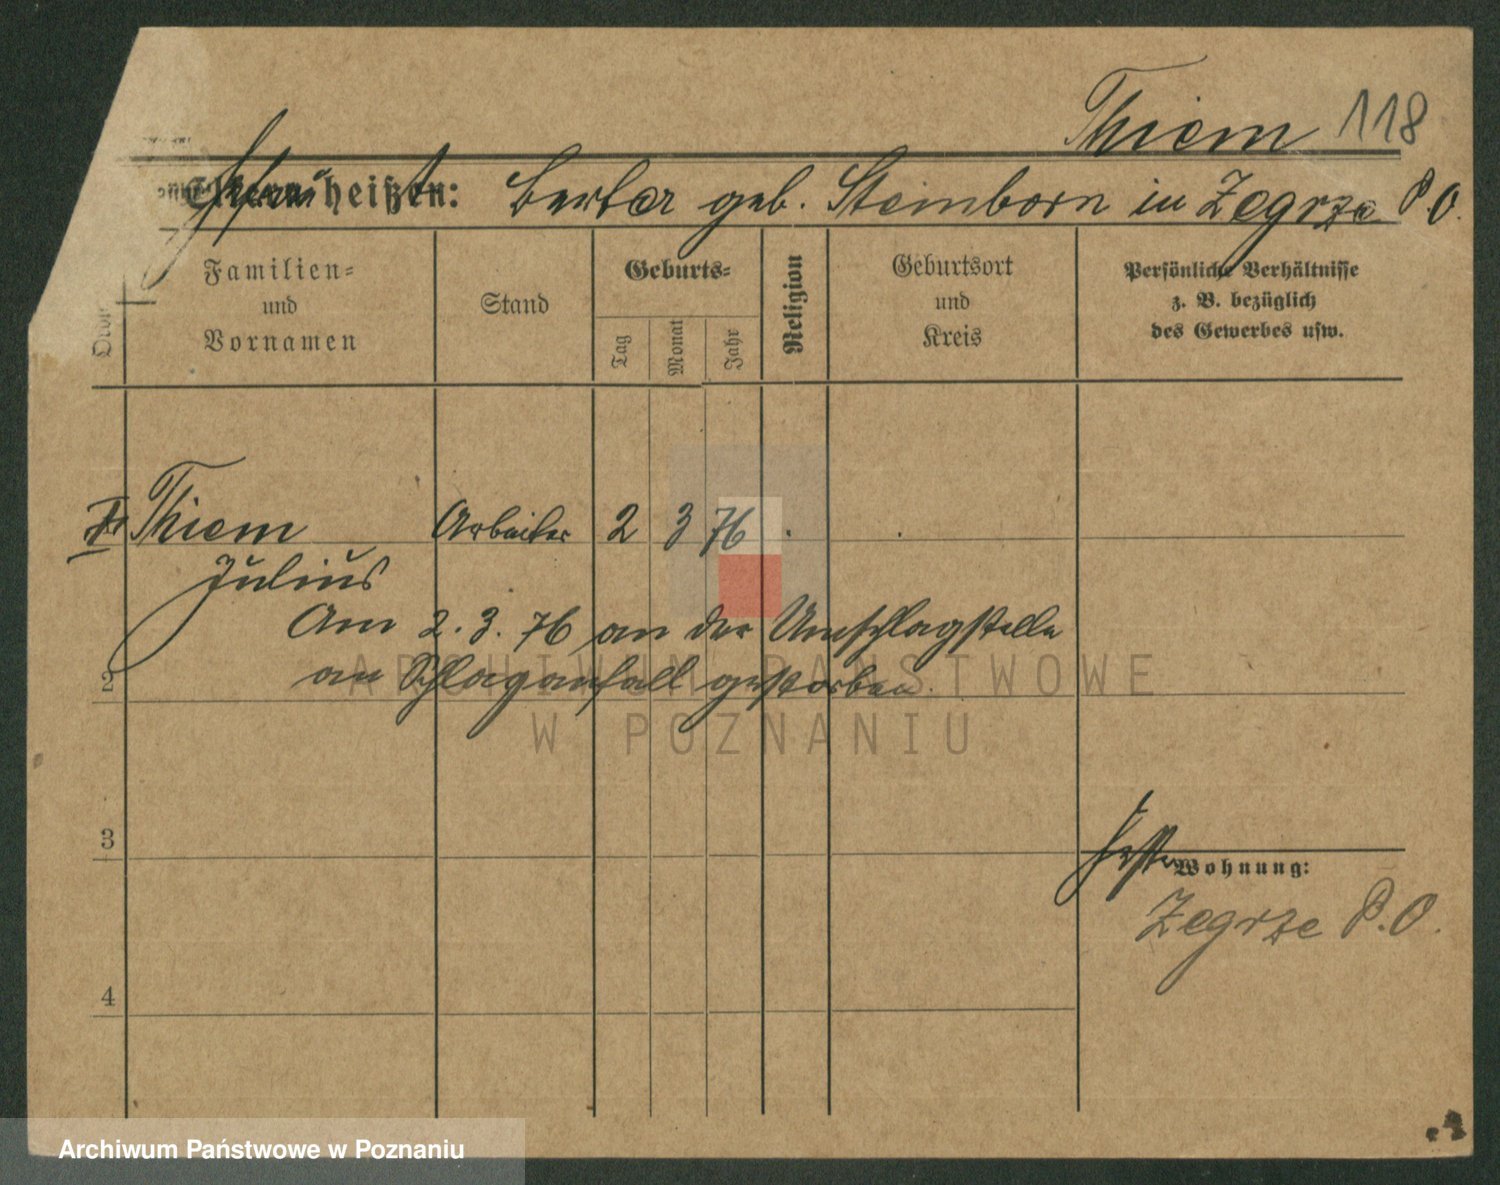 Thiem 118
Eltern heißen: geb. Steinborn in Zegrze P.O.
Familien-
und
Vornamen
Stand
Geburts-
Tag
Monat
Jahr
Religion
Geburtsort
und
Kreis
Persönliche Verhältnisse
z. B. bezüglich
des Gewerbes usw.
Thiem Arbeiter 2 3 76
Julius
Am 2. 3. 76 an der Umschlagstelle
an Schlaganfall gestorben.
2
3
Wohnung:
Zegrze P.O.
4
ARCHIWUM PAŃSTWOWE
W POZNANIU
Archiwum Państwowe w Poznaniu